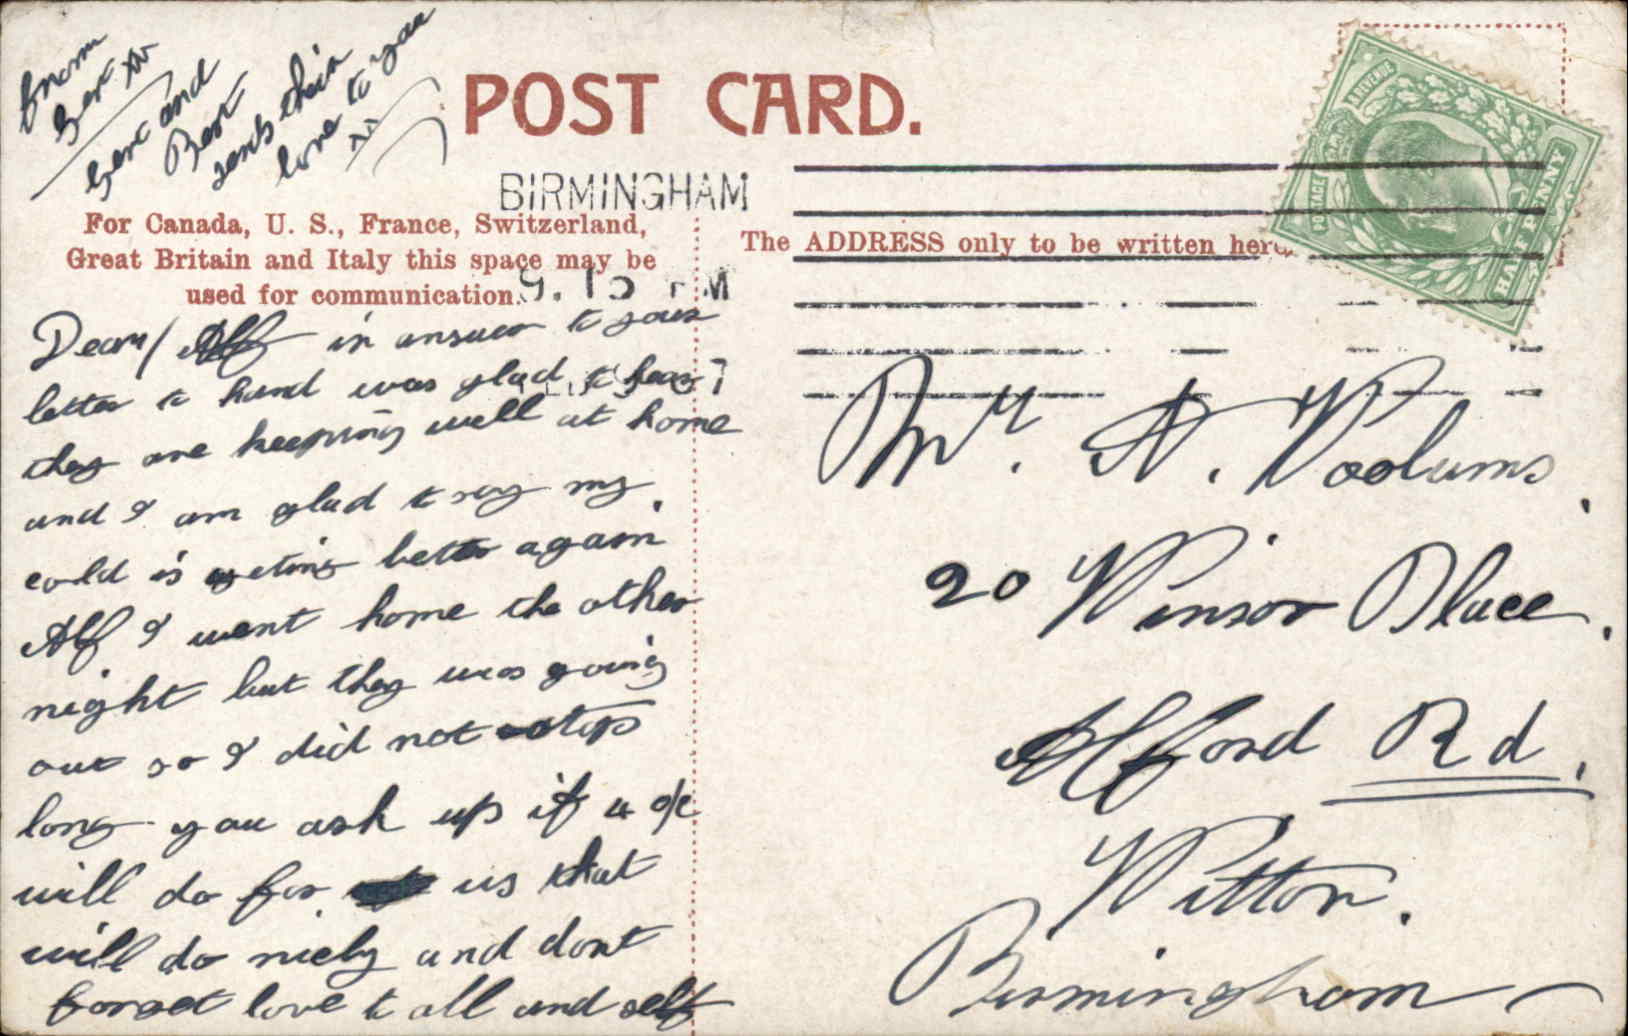 from
Ger xx
Ger and
Bert
sends their
love to you
xx
POST CARD.
BIRMINGHAM
For Canada, U. S., France, Switzerland,
Great Britain and Italy this space may be
used for communication.
9.15 PM
The ADDRESS only to be written here
POSTAGE
& REVENUE
HALFPENNY
Dear/ Alf in answer to yours
letter to hand was glad to hear
they are keeping well at home
and I am glad to say my
cold is geting better again
Alf I went home the other
night but they was going
out so I did not stop
long you ask up if a
will do for us that
will do nicely and dont
forget love to all and self
Mr. A. Woolums,
20 Winsor Place,
Alford Rd,
Witton.
Birmingham